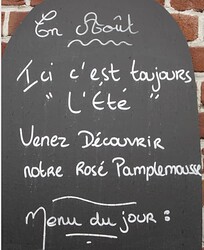 En Août
Ici c'est toujours
" L'Été "
Venez Découvrir
notre Rosé Pamplemousse
Menu du jour :